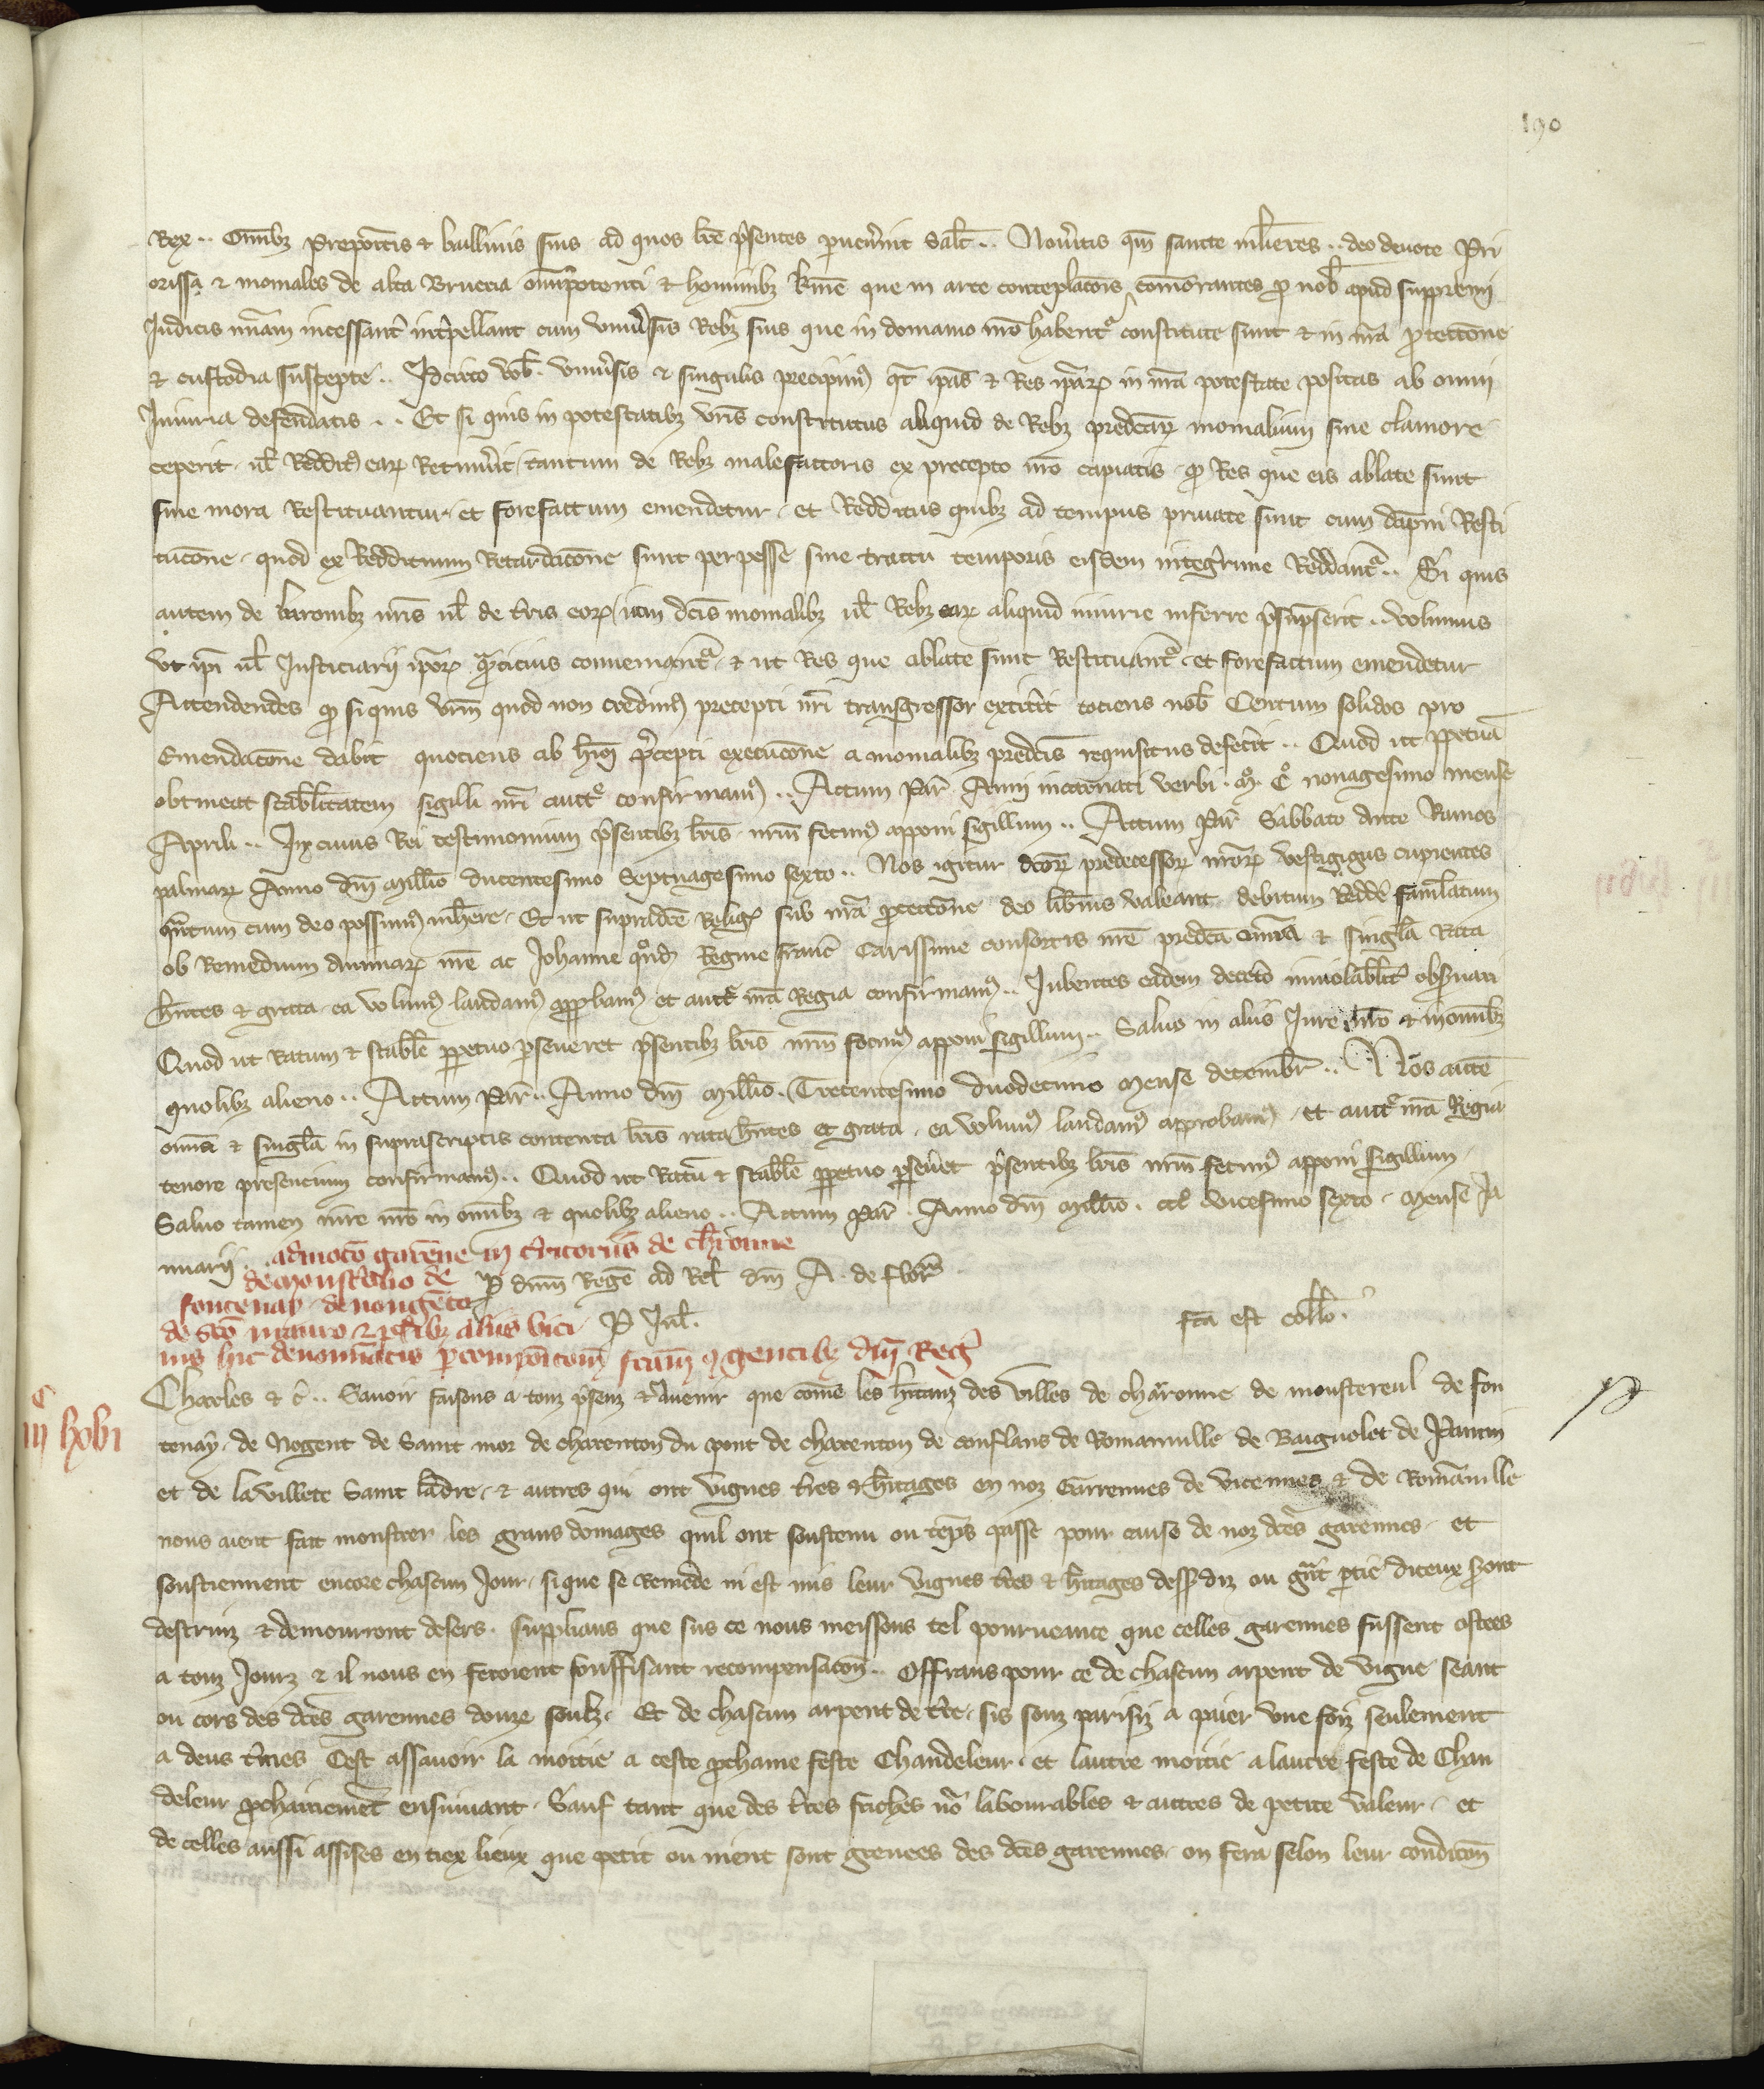 190
Rex .. Omnibz prepoitis & baillivis suis ad quos lre p̄sentes pervenerint Salt .. Noveritis qm̄ sancte ml̄ieres .. deo devote Pri
orissa & moniales de alta Brueria om̄ipotenti & hominibz que in arce conteplatōis com̄orantes p̄ nob̄ apud supp̄emi
Iudicis incessant̄ int̄pellant cum univ̄sis Rebz suis que in domanio nr̄o habent̄ constitute sunt & in nr̄a p̄tectōne
& custodia suscepte .. Idcirco vob̄ . univ̄sis & singulis precipim⁹ qt̄ ip̄as & Res ip̄ar⁊ in nr̄a potestate positas ab omni
Iniuria defendatis .. Et si quis in potestatibz vr̄is constitutus aliquid de Rebz predc̄ar⁊ monialium sine clamore
ceperit . ul̄ Reddit⁹ ear⁊ Retinuerit tantum de Rebz malefactoris ex precepto nr̄o capiatis . q̄ Res que eis ablate sunt
sine mora Restituantur et forefactum emendetur . et Redditus quibz ad tempus private sunt cum dāpni Resti
tucōne . quod ex Reddituum Retardacōne sunt perpesse sine tractu temporis eisdem inteḡrime Reddant̄ .. Si quis
autem de baronibz nr̄is ul̄ de t̄ris eor⁊ dc̄is monialibz ul̄ Rebz ear⁊ aliquid iniurie inferre p̄supserit .. volumus
ut ip̄i ul̄ Justiciarii ip̄or⁊ q̄ntocius conveniant̄ . & ut Res que ablate sunt Restituant̄ . et forefactum emendetur
Attendentes q̄ si quis vr̄m quod non credim⁹ precepti nr̄i transgressor extit̄it tociens nob̄ Centum solidos pro
Emendacōne dabit quociens ab hui⁹ p̄cepti execucōne a monialibz predc̄is requisitus defec̄it .. Quod ut ppetuā
obtineat stabl̄itatem sigilli nr̄i auct̄e confirmam⁹ .. Actum Par̄ Anni incarnati verbi . M̊ . C̊ nonagesimo mense
Aprili .. In cuius Rei testimonium p̄sentibz lr̄is . nr̄m fecim⁹ apponi sigillum .. Actum Par̄ Sabbato ante Ramos
palmar⁊ Anno dn̄i Mill̄io ducentesimo Septuagesimo sexto .. Nos igitur dc̄or⁊ predecessor⁊ nr̄or⁊ vestigiis cupientes
q̄ntum cum deo possum⁹ inh̄ere . Et ut supradc̄e Relig⁊ sub nr̄a p̄tectōne deo lib̄ius valeant debitum Redd̄e faml̄atum
ob Remedium animar⁊ nr̄e ac Johanne q̊nd⁊ Regine franc̄ Carissime consortis nr̄e predc̄a om̄ia & singl̄a Rata
hn̄tes & grata ea volum⁹ laudam⁹ app̄bam⁹ et auct̄e nr̄a Regia confirmam⁹ .. Jubentes eadem decet̄o inviolabl̄it̄ obs̄vari
Quod ut Ratum & stabl̄e ppetuo p̄severet p̄sentibz lr̄is nr̄m fecim⁹ apponi sigillum .. Salvo in aliis Jure nr̄o & in omibz
quolibz alieno .. Actum Par̄ .. Anno dn̄i Mill̄io . Trecentesimo duodecimo Mense decembr̄ .. Nos autē
om̄ia & singl̄a in suprascriptis contenta lr̄is rata hn̄tes et grata . ea volum⁹ laudam⁹ approbam⁹ . et auct̄e nr̄a Regia
tenore presencium confirmam⁹ .. Quod ut Ratū & stabl̄e ppetuo p̄sev̄et p̄sentibz lr̄is nr̄m fecim⁹ apponi sigillum .
Salvo tamen iure nr̄o in om̄ibz & quolibz alieno .. Actum Par̄ . Anno dn̄i Mill̄io . ccc̄ vicesimo sexto . Mense Ja
nuarii .. admocō garēne in t̄ritoriis de ch̄ronne
de monst̄olio de p̄ dn̄m Regē ad Rel̄ dn̄i A . de flor̄
fontenay . de nongēto
de sc̄o mauro & p̄tibz aliis vici P Jul̄ . fc̄a est coll̄o .
nis hic denom̄iatis p̄ composicōm̄ fc̄am c̄ gentibz dn̄i Reḡ
Charles & c̄ .. Savoir faisons a touz p̄senz & avenir que com̄e les h̄itanz des villes de charonne de monstereul de fon
iiijc hobi tenay . de Nogent de Saint mor de charenton du pont de charenton de conflans de Romainville de Baignolet de Pantin
et de la villete Saint ladre . & autres qui ont vignes t̄res & h̄itages en noz Garrennes de vicennes & de Romāville
nous aient fait monstrer les grans domages quil ont soustenu ou tēps passe pour cause de noz dc̄es garennes . et
soustiennent encore chascun Jour . si que se remede ni est mis leur vignes t̄res & h̄itages dess̄diz ou gn̄t p̄tie diceux s̄ont
destruiz & demourront desers . supplians que sus ce nous meissons tel pourveance que celles garennes fussent ostees
a touz Jourz & il nous en feroient souffisant recompensacōn .. Offrans pour ce de chascun arpent de vigne seant
ou cors des dc̄es garennes douze soulz . Et de chascun arpent de t̄re . sis souz parisiz a paier une foiz seulement
a deus t̄mes Cest assavoir la moitie a ceste p̄chaine feste Chandeleur . et lautre moitie a lautre feste de Chan
deleur p̄chainemēt ensuivant . Sauf tant que des t̄res friches nō labourables & autres de petite valeur . et
de celles aussi assises en tiex lieux que petit ou nient sont grevees des dc̄es garennes . on fera selon leur condicōn